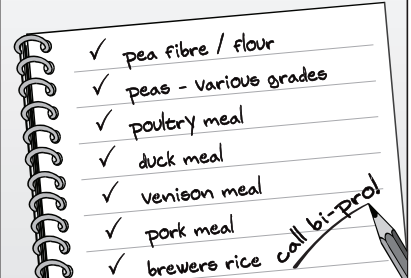 ✓ pea fibre / flour
✓ peas - various grades
✓ poultry meal
✓ duck meal
✓ venison meal
✓ pork meal
✓ brewers rice
call bi-pro!